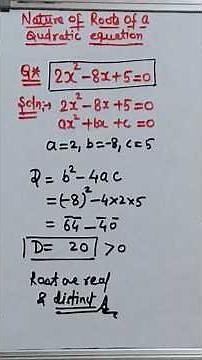 Nature of Roots of a
Qudratic equation
Q* 2x²-8x+5=0
Soln:→ 2x²-8x+5=0
ax²+bx+c=0
a=2, b=-8, c=5
D = b²-4ac
=(-8)²-4×2×5
= 64 - 40
D= 20 >0
Root are real
& distinct